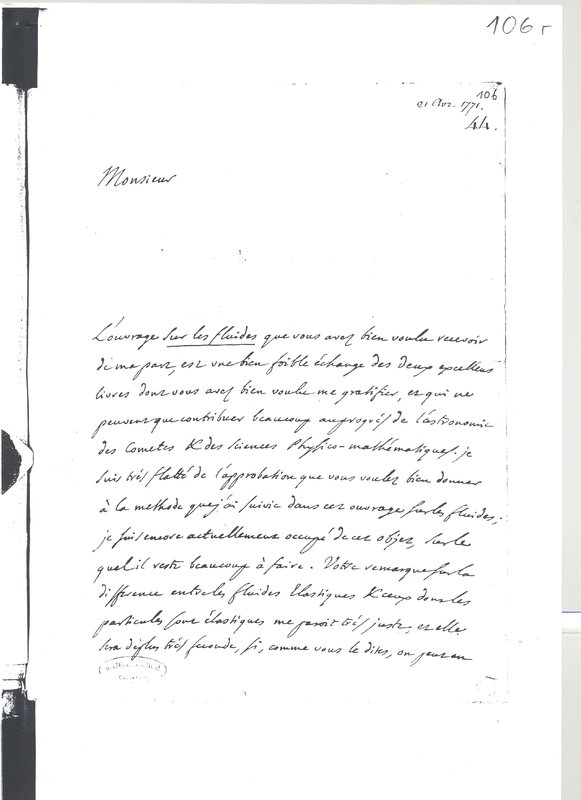 106 r
106
21 Avr. 1771.
44.
Monsieur
L'ouvrage sur les fluides que vous avez bien voulu recevoir
de ma part, est une bien foible échange des deux excellens
livres dont vous avez bien voulu me gratifier, et qui ne
peuvent que contribuer beaucoup au progrés de l'astronomie
des Cometes & des sciences Physico-mathématiques. je
suis trés flatté de l'approbation que vous voulez bien donner
à la methode que j'ai suivie dans cet ouvrage sur les fluides;
je suis encore actuellement occupé de cet objet, sur le
quel il reste beaucoup à faire. Votre remarque sur la
difference entre les fluides Elastiques & ceux dont les
particules sont élastiques me paroit trés juste, et elle
sera de plus trés feconde, si, comme vous le dites, on peut en